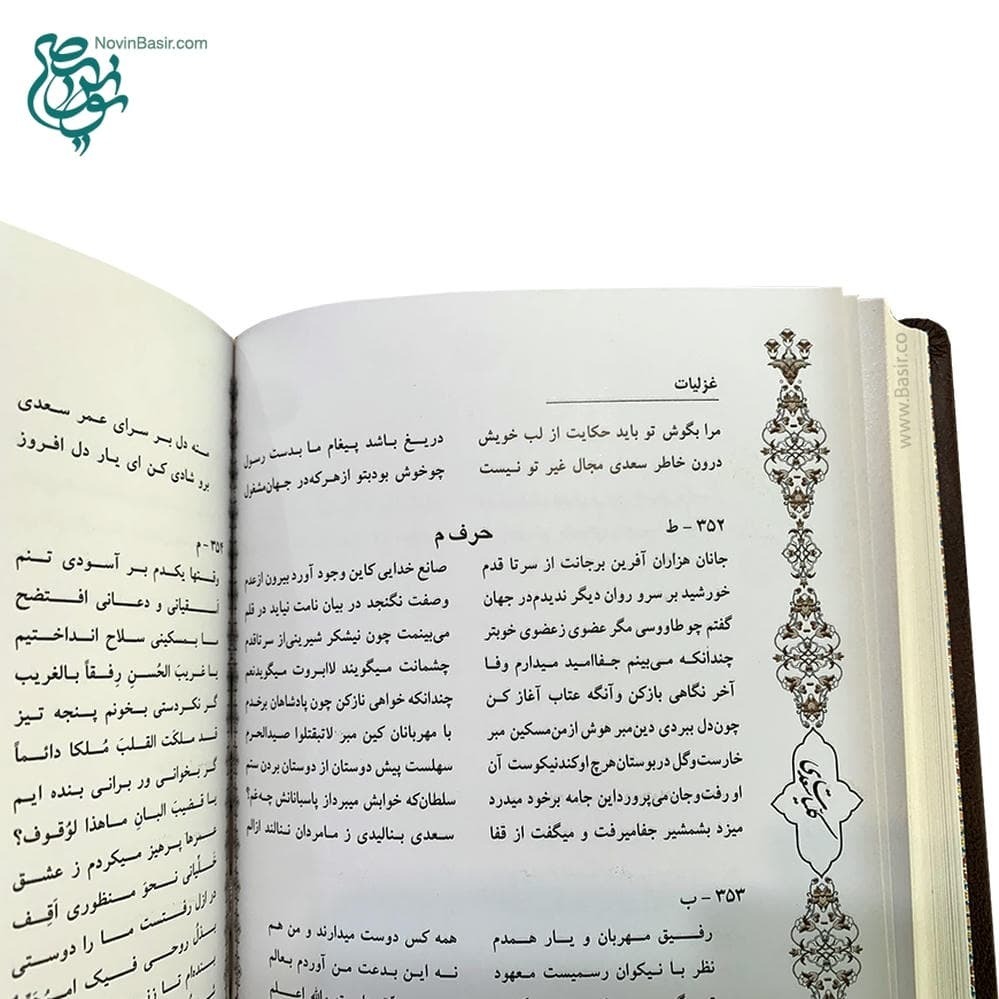 NovinBasir.com
www.Basir.co
غزلیات
مرا بگوش تو باید حکایت از لب خویش دریغ باشد پیغام ما بدست رسول
درون خاطر سعدی مجال غیر تو نیست چوخوش بودبتو ازهرکه‌در جهان‌مشغول
۳۵۲ - ط
حرف م
جانان هزاران آفرین برجانت از سرتا قدم صانع خدایی کاین وجود آورد بیرون ازعدم
خورشید بر سرو روان دیگر ندیدم‌در جهان وصفت نگنجد در بیان نامت نیاید در قلم
گفتم چو طاووسی مگر عضوی زعضوی خوبتر می‌بینمت چون نیشکر شیرینی‌از سرتاقدم
چندانکه می‌بینم جفاامید میدارم وفا چشمانت میگویند لاابروت میگویدنعم
آخر نگاهی بازکن وآنگه عتاب آغاز کن چندانکه خواهی نازکن چون پادشاهان برخدم
چون‌دل ببردی دین‌مبر هوش ازمن‌مسکین مبر با مهربانان کین مبر لاتبقتلوا صیدالحرم
خارست‌وگل دربوستان‌هرچ اوکندنیکوست آن سهلست پیش دوستان از دوستان بردن ستم
او رفت‌وجان می‌پرورداین جامه برخود میدرد سلطان‌که خوابش میبرداز پاسبانانش چه‌غم؟
میزد بشمشیر جفامیرفت و میگفت از قفا سعدی بنالیدی ز مامردان ننالند ازالم
۳۵۳ - ب
رفیق مهربان و یار همدم همه کس دوست میدارند و من هم
نظر با نیکوان رسمیست معهود نه این بدعت من آوردم بعالم
کلیات سعدی
منه دل بر سرای عمر سعدی
برو شادی کن ای یار دل افروز
۳۵۴ - م
وقتها یکدم بر آسودی تنم
اسقیانی و دعانی افتضح
ما بمسکینی سلاح انداختیم
یا غریبَ الحُسنِ رِفقاً بالغریب
گر نکردستی بخونم پنجه تیز
قد ملکتَ القلبَ مُلکا دائماً
گر بخوانی ور برانی بنده ایم
یا قضیبَ البانِ ماهذا لوُقوف؟
عمرها پرهیز میکردم ز عشق
خَلّیانی نحوَ منظوری اَقِف
در ازل رفتست ما را دوستی
بذلُ روحی فیک
بنده‌ام تا